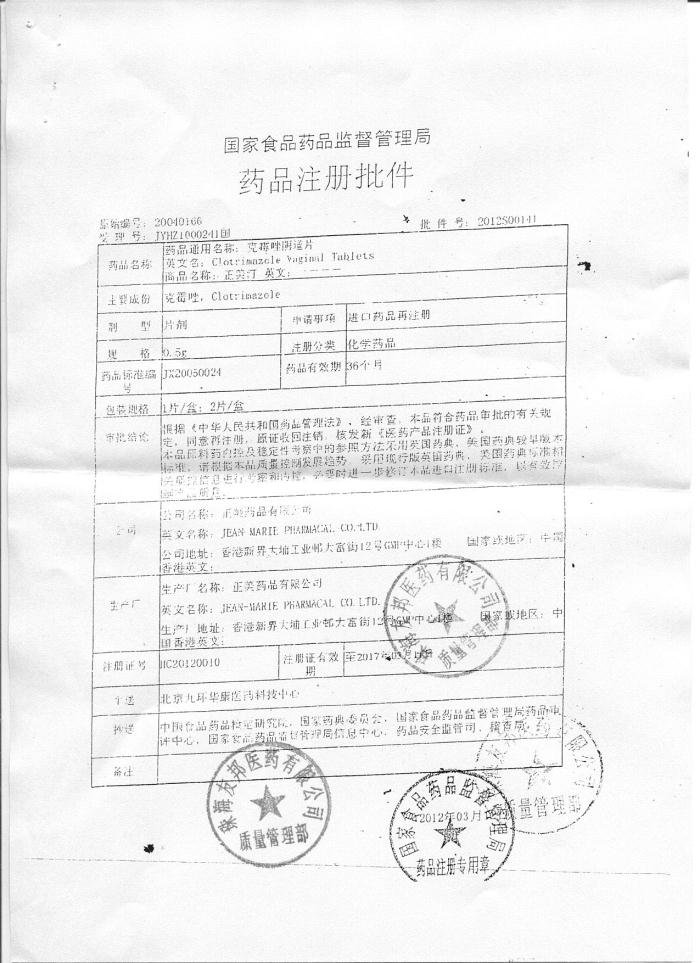 国家食品药品监督管理局
药品注册批件
原始编号: 20040166
受 理 号: JYHZ1000241国
批 件 号: 2012S00141
药品名称
药品通用名称: 克霉唑阴道片
英文名: Clotrimazole Vaginal Tablets
商品名称: 正美汀 英文:
主要成份
克霉唑, Clotrimazole
剂 型
片剂
申请事项
进口药品再注册
规 格
0.5g
注册分类
化学药品
药品标准编号
JX20050024
药品有效期
36个月
包装规格
1片/盒; 2片/盒
审批结论
根据《中华人民共和国药品管理法》, 经审查, 本品符合药品审批的有关规
定, 同意再注册, 原证收回注销, 核发新《医药产品注册证》。
本品原料药自控及稳定性考察中的参照方法采用英国药典、美国药典较早版本
标准, 请根据本品质量控制发展趋势, 采用现行版英国药典、美国药典标准相
进行考察和内控, 必要时进一步修订本品进口注册标准, 以有效控
公司
公司名称: 正美药品有限公司
英文名称: JEAN-MARIE PHARMACAL CO.LTD
公司地址: 香港新界大埔工业邨大富街12号GMP中心1楼 国家或地区: 中国
香港英文:
生产厂
生产厂名称: 正美药品有限公司
英文名称: JEAN-MARIE PHARMACAL CO.LTD.
生产厂地址: 香港新界大埔工业邨大富街12号GMP中心1楼 国家或地区: 中
国香港英文:
注册证号
HC20120010
注册证有效期
至2017年03月
主送
北京九环华康医药科技中心
抄送
中国食品药品检定研究院, 国家药典委员会, 国家食品药品监督管理局药品审
评中心, 国家食品药品监督管理局信息中心, 药品安全监管司, 稽查局
备注
珠海友邦医药有限公司
质量管理部
珠海友邦医药有限公司
质量管理部
国家食品药品监督管理局
2012年03月
药品注册专用章
有限公司
质量管理部